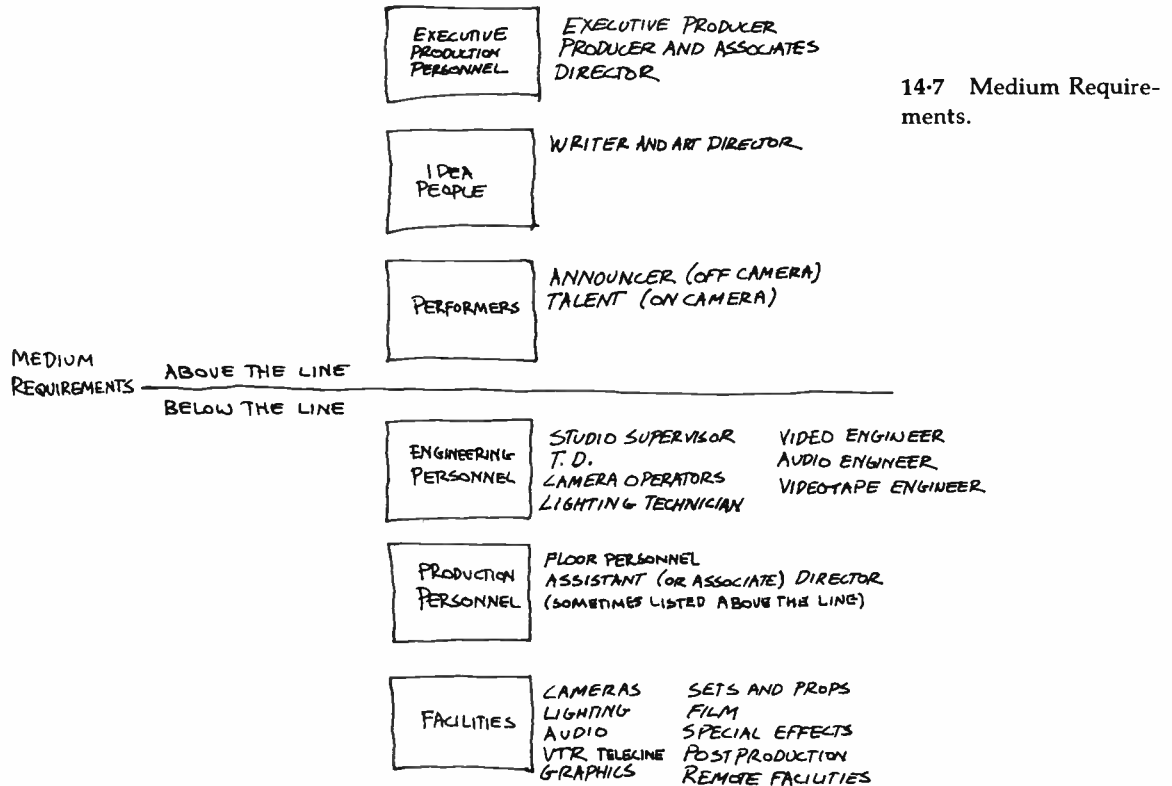 EXECUTIVE
PRODUCTION
PERSONNEL
EXECUTIVE PRODUCER
PRODUCER AND ASSOCIATES
DIRECTOR
14·7 Medium Require-
ments.
IDEA
PEOPLE
WRITER AND ART DIRECTOR
PERFORMERS
ANNOUNCER (OFF CAMERA)
TALENT (ON CAMERA)
MEDIUM
REQUIREMENTS
ABOVE THE LINE
BELOW THE LINE
ENGINEERING
PERSONNEL
STUDIO SUPERVISOR
T.D.
CAMERA OPERATORS
LIGHTING TECHNICIAN
VIDEO ENGINEER
AUDIO ENGINEER
VIDEOTAPE ENGINEER
PRODUCTION
PERSONNEL
FLOOR PERSONNEL
ASSISTANT (OR ASSOCIATE) DIRECTOR
(SOMETIMES LISTED ABOVE THE LINE)
FACILITIES
CAMERAS
LIGHTING
AUDIO
VTR TELECINE
GRAPHICS
SETS AND PROPS
FILM
SPECIAL EFFECTS
POSTPRODUCTION
REMOTE FACILITIES